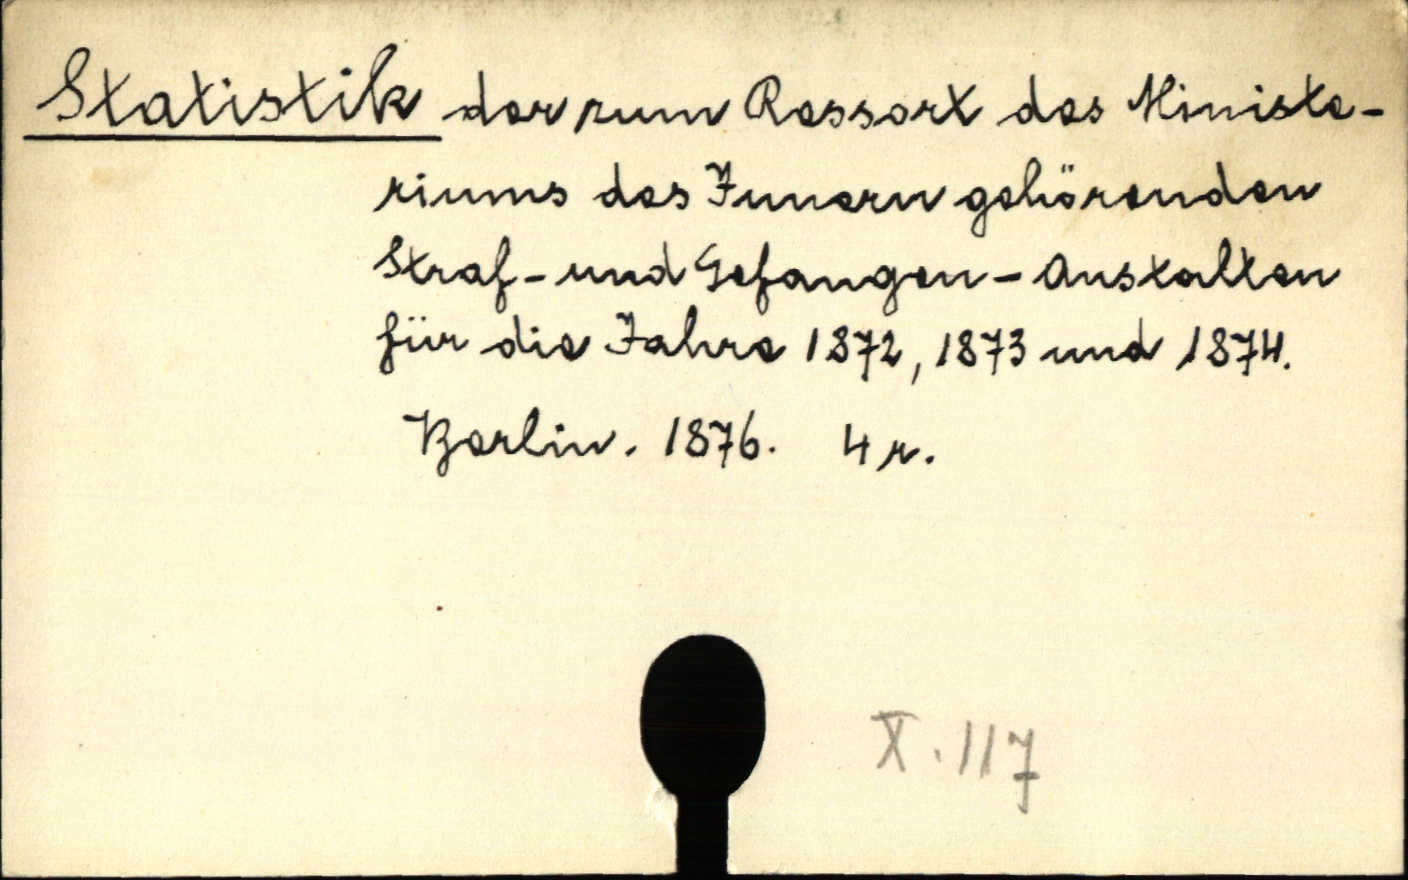 Statistik der zum Ressort des Ministe-
riums des Innern gehörenden
Straf- und Gefangen-Anstalten
für die Jahre 1872, 1873 und 1874.
Berlin. 1876. 4 r.
X. 117